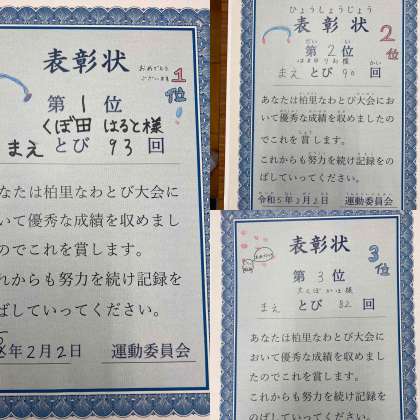 表彰状
おめでとう
ございます
1位!
第1位
くぼ田 はると様
まえとび 93回
なたは柏里なわとび大会に
いて優秀な成績を収めまし
のでこれを賞します。
れからも努力を続け記録を
ばしていってください。
年2月2日 運動委員会
ひょうしょうじょう
表彰状
2位
だい い
第2位
まえ とび 90 回
かい
あなたは柏里なわとび大会にお
いて優秀な成績を収めましたの
でこれを賞します。
これからも努力を続け記録をの
ばしていってください。
令和5年2月2日 運動委員会
表彰状
3位
第3位
まえ とび 82 回
あなたは柏里なわとび大会に
おいて優秀な成績を収めまし
たのでこれを賞します。
これからも努力を続け記録を
のばしていってください。